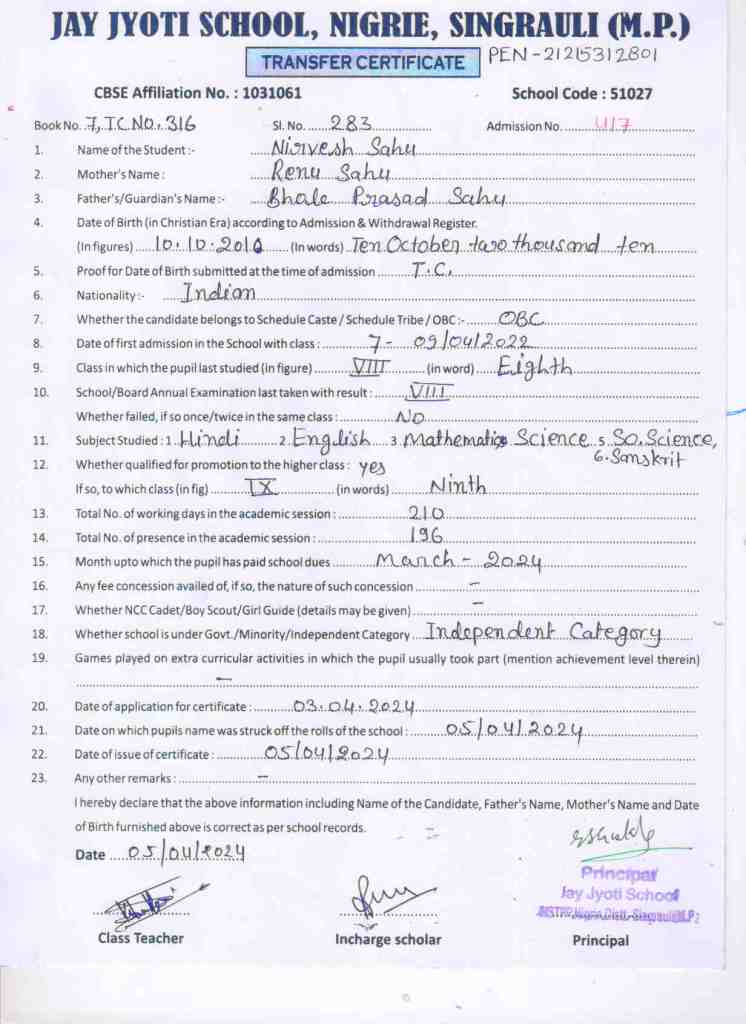 JAY JYOTI SCHOOL, NIGRIE, SINGRAULI (M.P.)
TRANSFER CERTIFICATE PEN - 21215312801
CBSE Affiliation No. : 1031061 School Code : 51027
Book No. 7, T.C NO. 316 Sl. No. 283 Admission No. 417
1. Name of the Student :- Nirvesh Sahu
2. Mother's Name : Renu Sahu
3. Father's/Guardian's Name :- Bhale Prasad Sahu
4. Date of Birth (in Christian Era) according to Admission & Withdrawal Register.
(In figures) 10.10.2010 (In words) Ten October two thousand ten
5. Proof for Date of Birth submitted at the time of admission T.C.
6. Nationality :- Indian
7. Whether the candidate belongs to Schedule Caste / Schedule Tribe / OBC :- OBC
8. Date of first admission in the School with class : 7 - 09/04/2022
9. Class in which the pupil last studied (in figure) VIII (in word) Eighth
10. School/Board Annual Examination last taken with result : VIII
Whether failed, if so once/twice in the same class : NO
11. Subject Studied : 1. Hindi 2. English 3. Mathematics Science 5. So. Science,
6. Sanskrit
12. Whether qualified for promotion to the higher class : yes
If so, to which class (in fig) IX (in words) Ninth
13. Total No. of working days in the academic session : 210
14. Total No. of presence in the academic session : 196
15. Month upto which the pupil has paid school dues March - 2024
16. Any fee concession availed of, if so, the nature of such concession –
17. Whether NCC Cadet/Boy Scout/Girl Guide (details may be given) –
18. Whether school is under Govt./Minority/Independent Category Independent Category
19. Games played on extra curricular activities in which the pupil usually took part (mention achievement level therein)
–
20. Date of application for certificate : 03.04.2024
21. Date on which pupils name was struck off the rolls of the school : 05/04/2024
22. Date of issue of certificate : 05/04/2024
23. Any other remarks : –
I hereby declare that the above information including Name of the Candidate, Father's Name, Mother's Name and Date
of Birth furnished above is correct as per school records.
Date 05/04/2024
Principal
Jay Jyoti School
Class Teacher Incharge scholar Principal